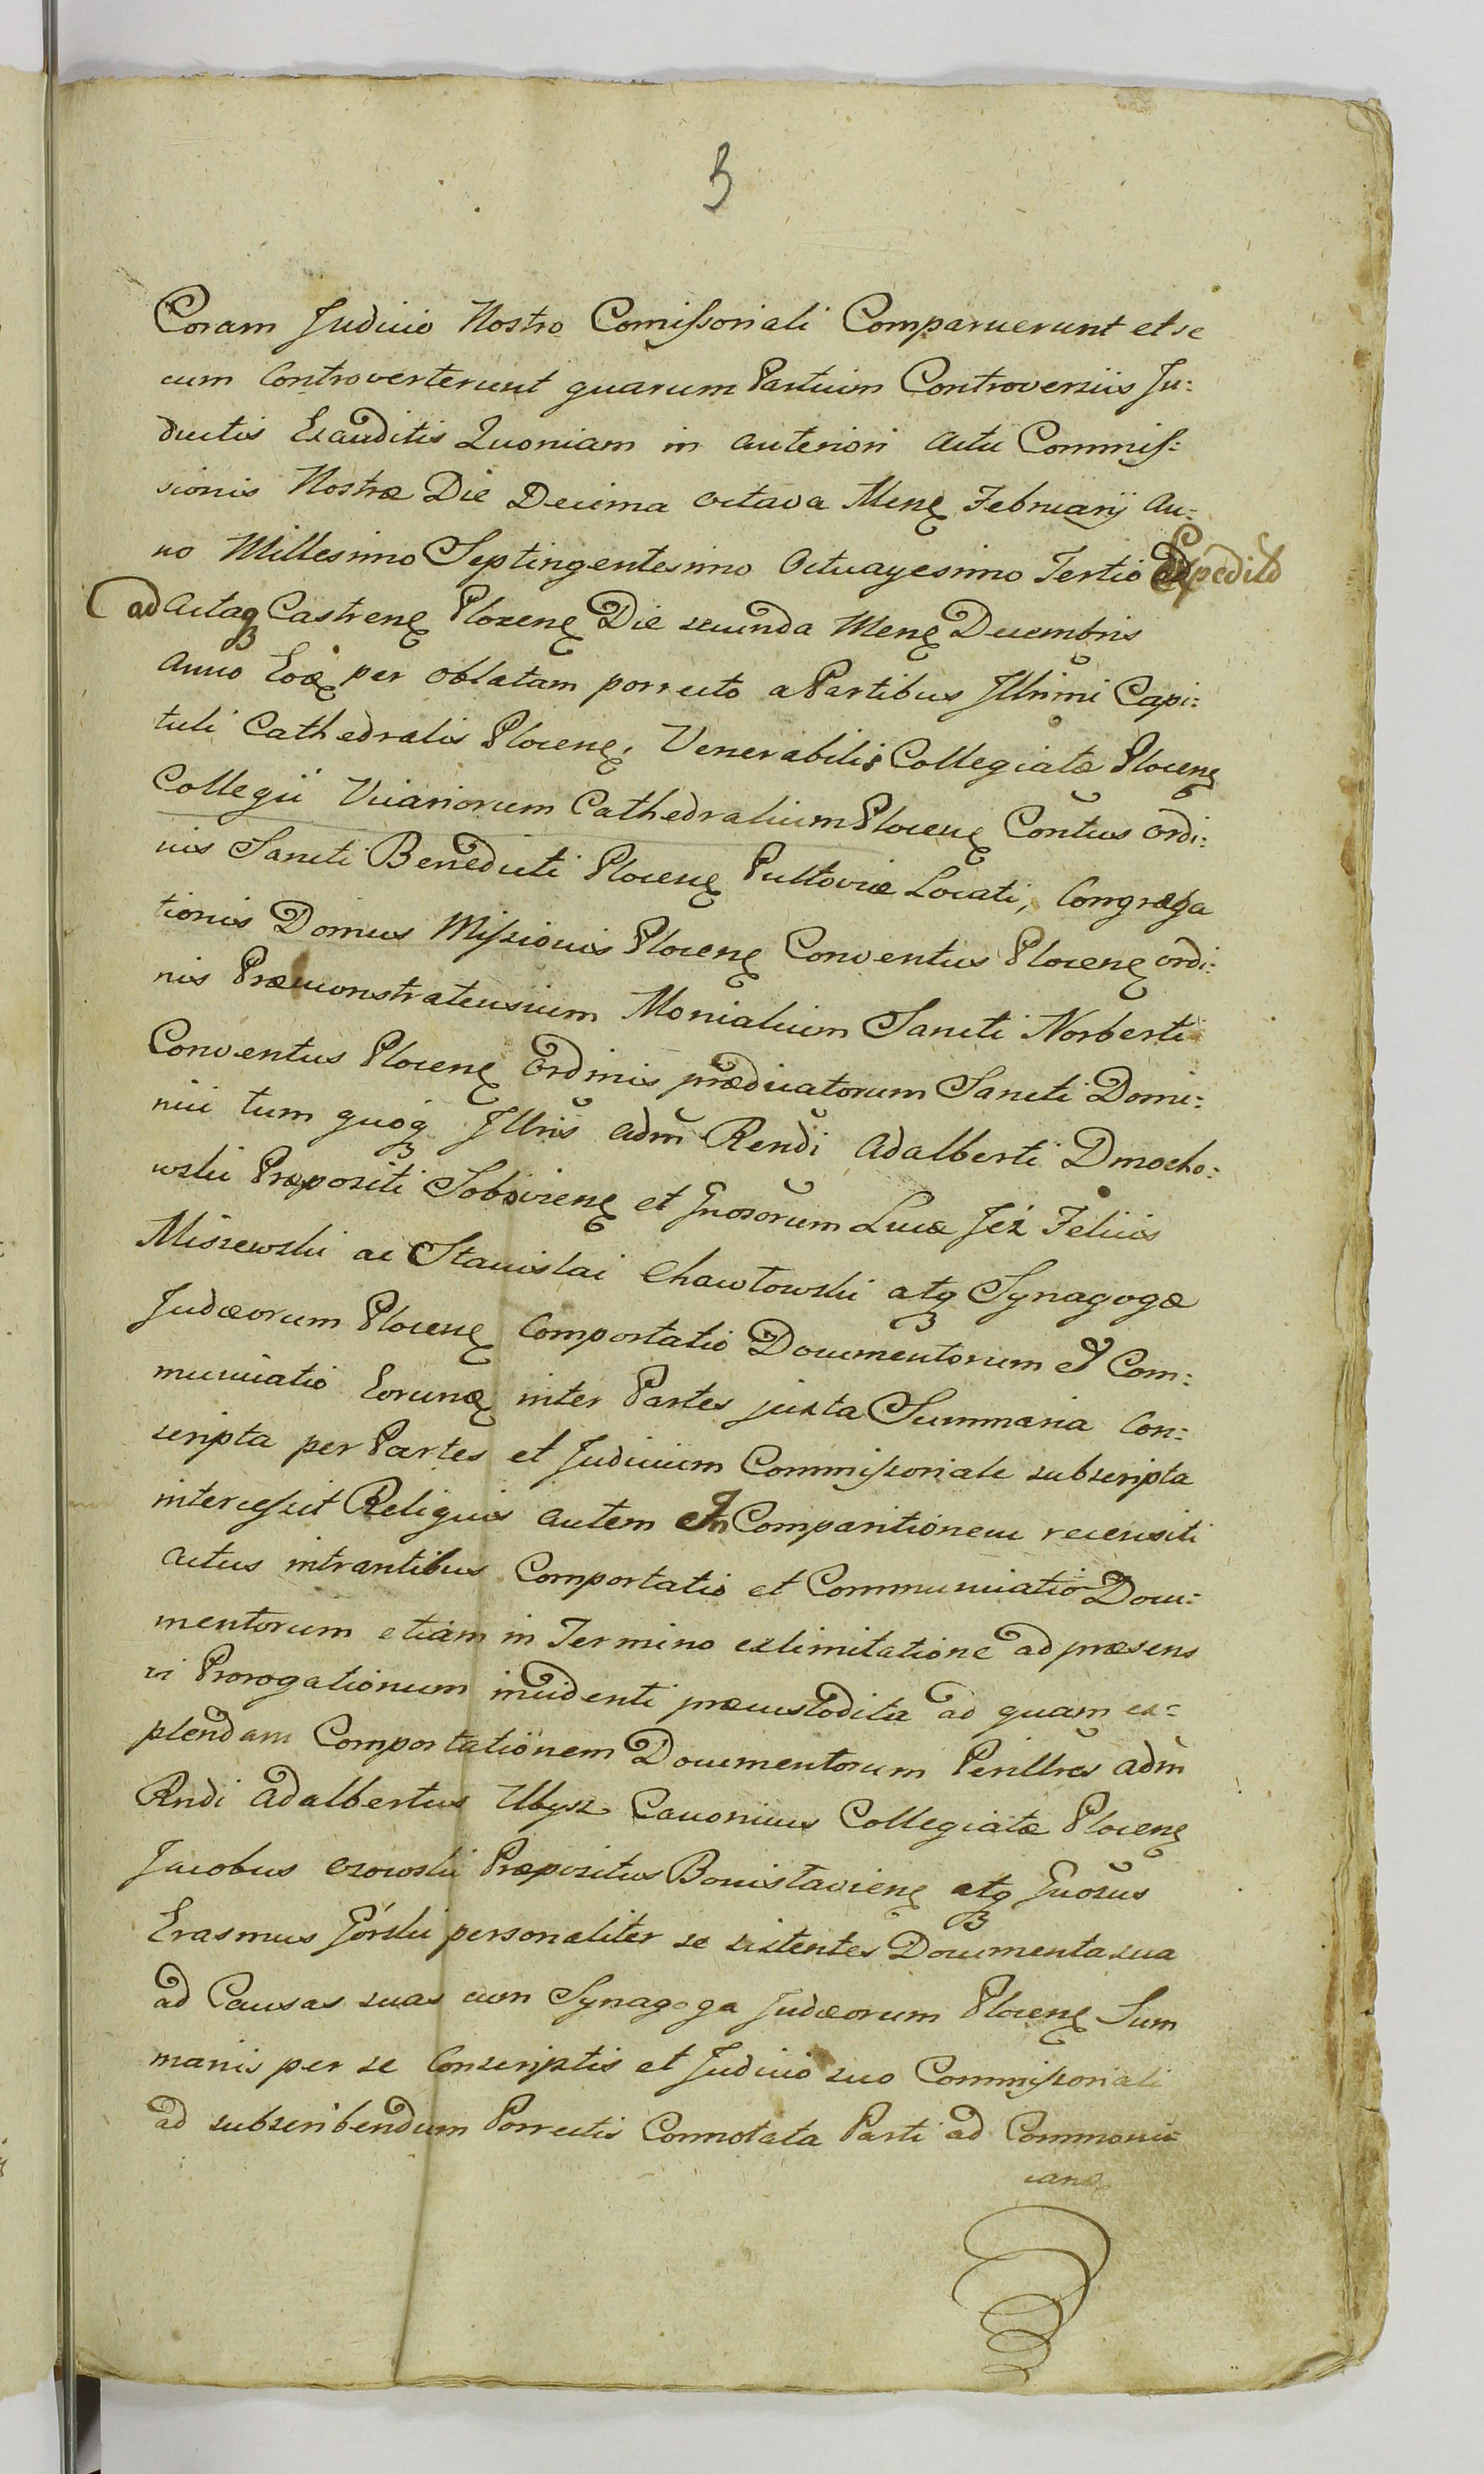 3
Coram Judicio Nostro Comissoriali Comparuerunt et se
cum Controverterunt quarum Partium Controversiis In:
ductis Exauditis Quoniam in anteriori Actu Commis:
sionis Nostræ Die Decima octava Mens Februarij An:
no Millesimo Septingentesimo Octuagesimo Tertio Expedito
ad Actaq Castrens Plocens Die secunda Mens Decembris
Anno Eod per oblatam porrecto a Partibus Illrimi Capi:
tuli Cathedralis Plocens, Venerabilis Collegiatæ Plocens
Collegii Vicariorum Cathedralium Plocens Contus ordi:
nis Sancti Benedicti Plocens Pultoviæ Locati, Congrega
tionis Domus Missionis Plocens Conventus Plocens ordi:
nis Præmonstratensium Monialium Sancti Norberti
Conventus Plocens Ordinis prædicatorum Sancti Domi:
nici tum quoq Illris adm Rendi Adalberti Dmocho:
wski Præpositi Soboviens et Gnosorum Lucæ Jeż Felicis
Miszewski ac Stanislai Chawłowski atq Synagogæ
Judæorum Plocens Comportatio Documentorum et Com:
municatio Eorund inter Partes juxta Summaria Con:
scripta per Partes et Judicium Commissoriale subscripta
intercessit Reliquis autem In Comparitionem recensiti
actus intrantibus Comportatio et Communicatio Docu:
mentorum etiam in Termino exlimitatione ad præsens
vi Prorogationum incidenti præcustodita ad quam ex=
plendam Comportationem Documentorum Perillres adm
Rndi Adalbertus Ubysz Canonicus Collegiatæ Plocens
Jacobus Czowski Præpositus Bonislaviens atq Gnosus
Erasmus Górski personaliter se sistentes Documenta sua
ad Causas suas cum Synagoga Judæorum Plocens Sum
mariis per se Conscriptis et Judicio suo Commissoriali
ad subscribendum Porrectis Connotata Parti ad Commoni=
cand